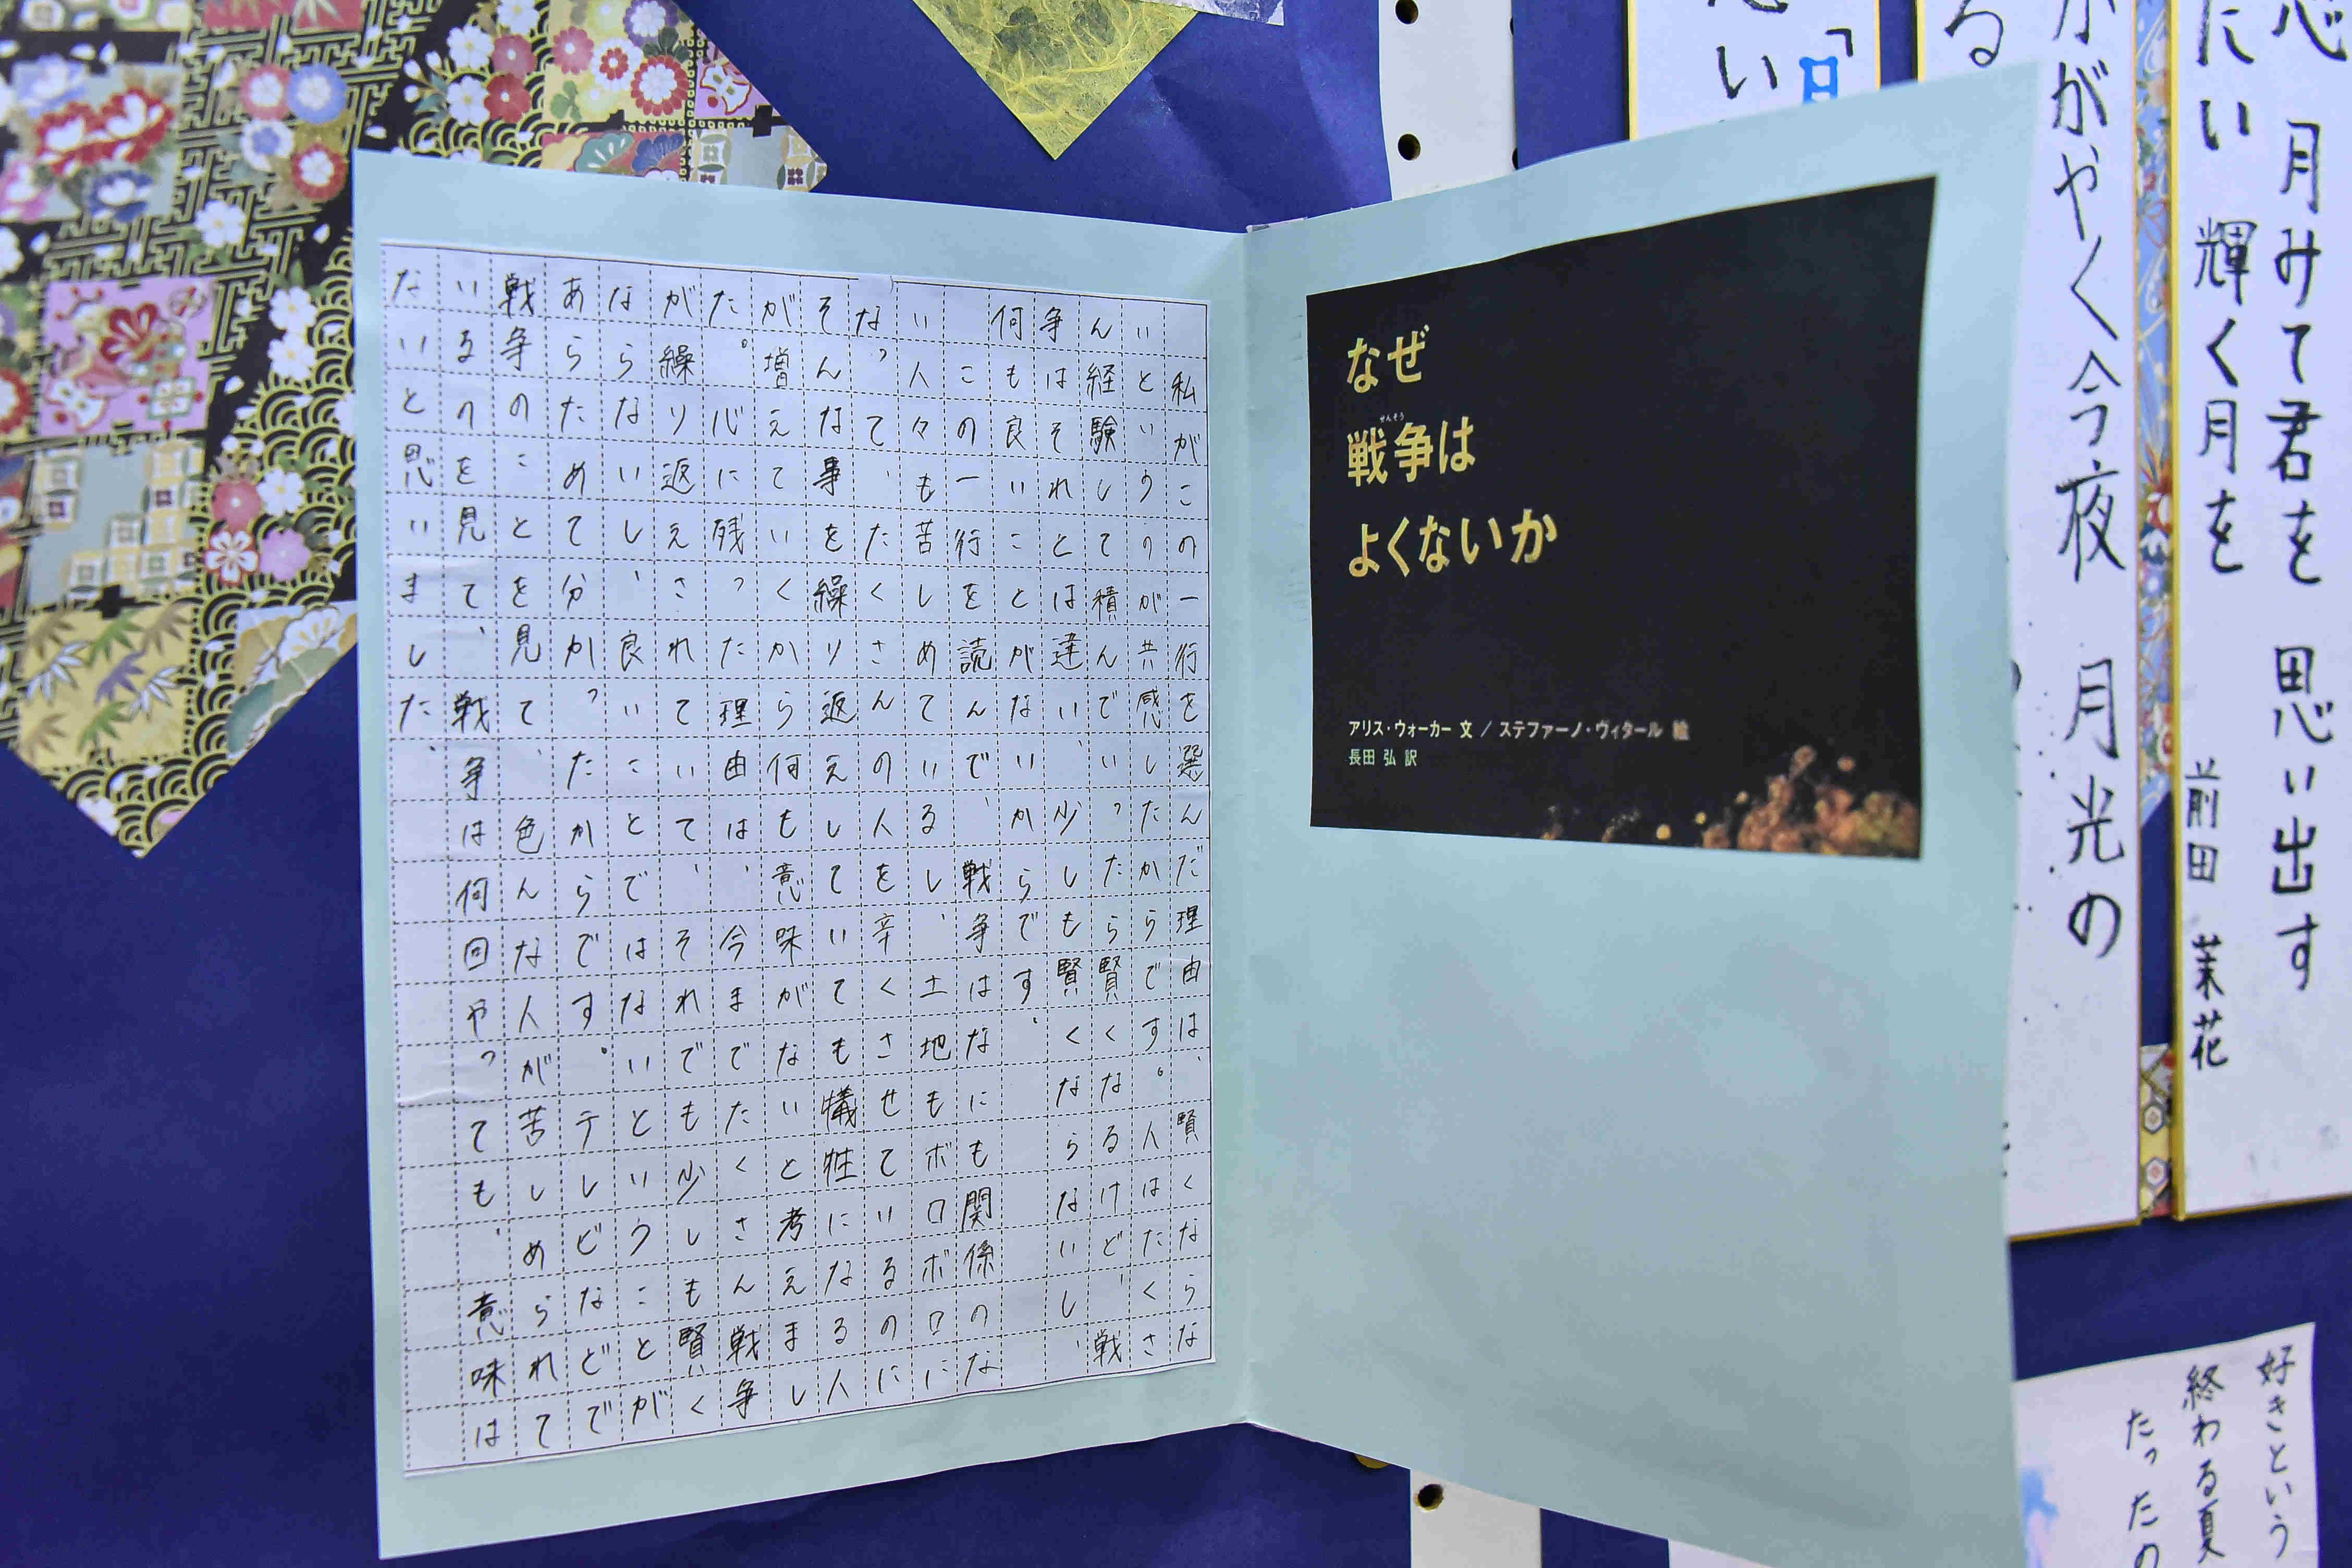 私がこの一行を選んだ理由は、賢くならな
いというのが共感したからです。人はたくさ
ん経験して積んでいったら賢くなるけど、戦
争はそれとは違い、少しも賢くならないし、
何も良いことがないからです。
この一行を読んで、戦争はなにも関係のな
い人々も苦しめているし、土地もボロボロに
なって、たくさんの人を辛くさせているのに
そんな事を繰り返えしていても犠牲になる人
が増えていくから何も意味がないと考えまし
た。心に残った理由は、今までたくさん戦争
が繰り返えされていて、それでも少しも賢く
ならないし、良いことではないということが
あらためて分かったからです。テレビなどで
戦争のことを見て、色んな人が苦しめられて
いるのを見て、戦争は何回やっても、意味は
ないと思いました。
なぜ
せんそう
戦争は
よくないか
アリス・ウォーカー 文 / ステファーノ・ヴィタール 絵
長田 弘 訳
月みて君を 思い出す
たい 輝く月を
前田 茉花
がやく今夜 月光の
る
「日
い
好きという
終わる夏
たったの